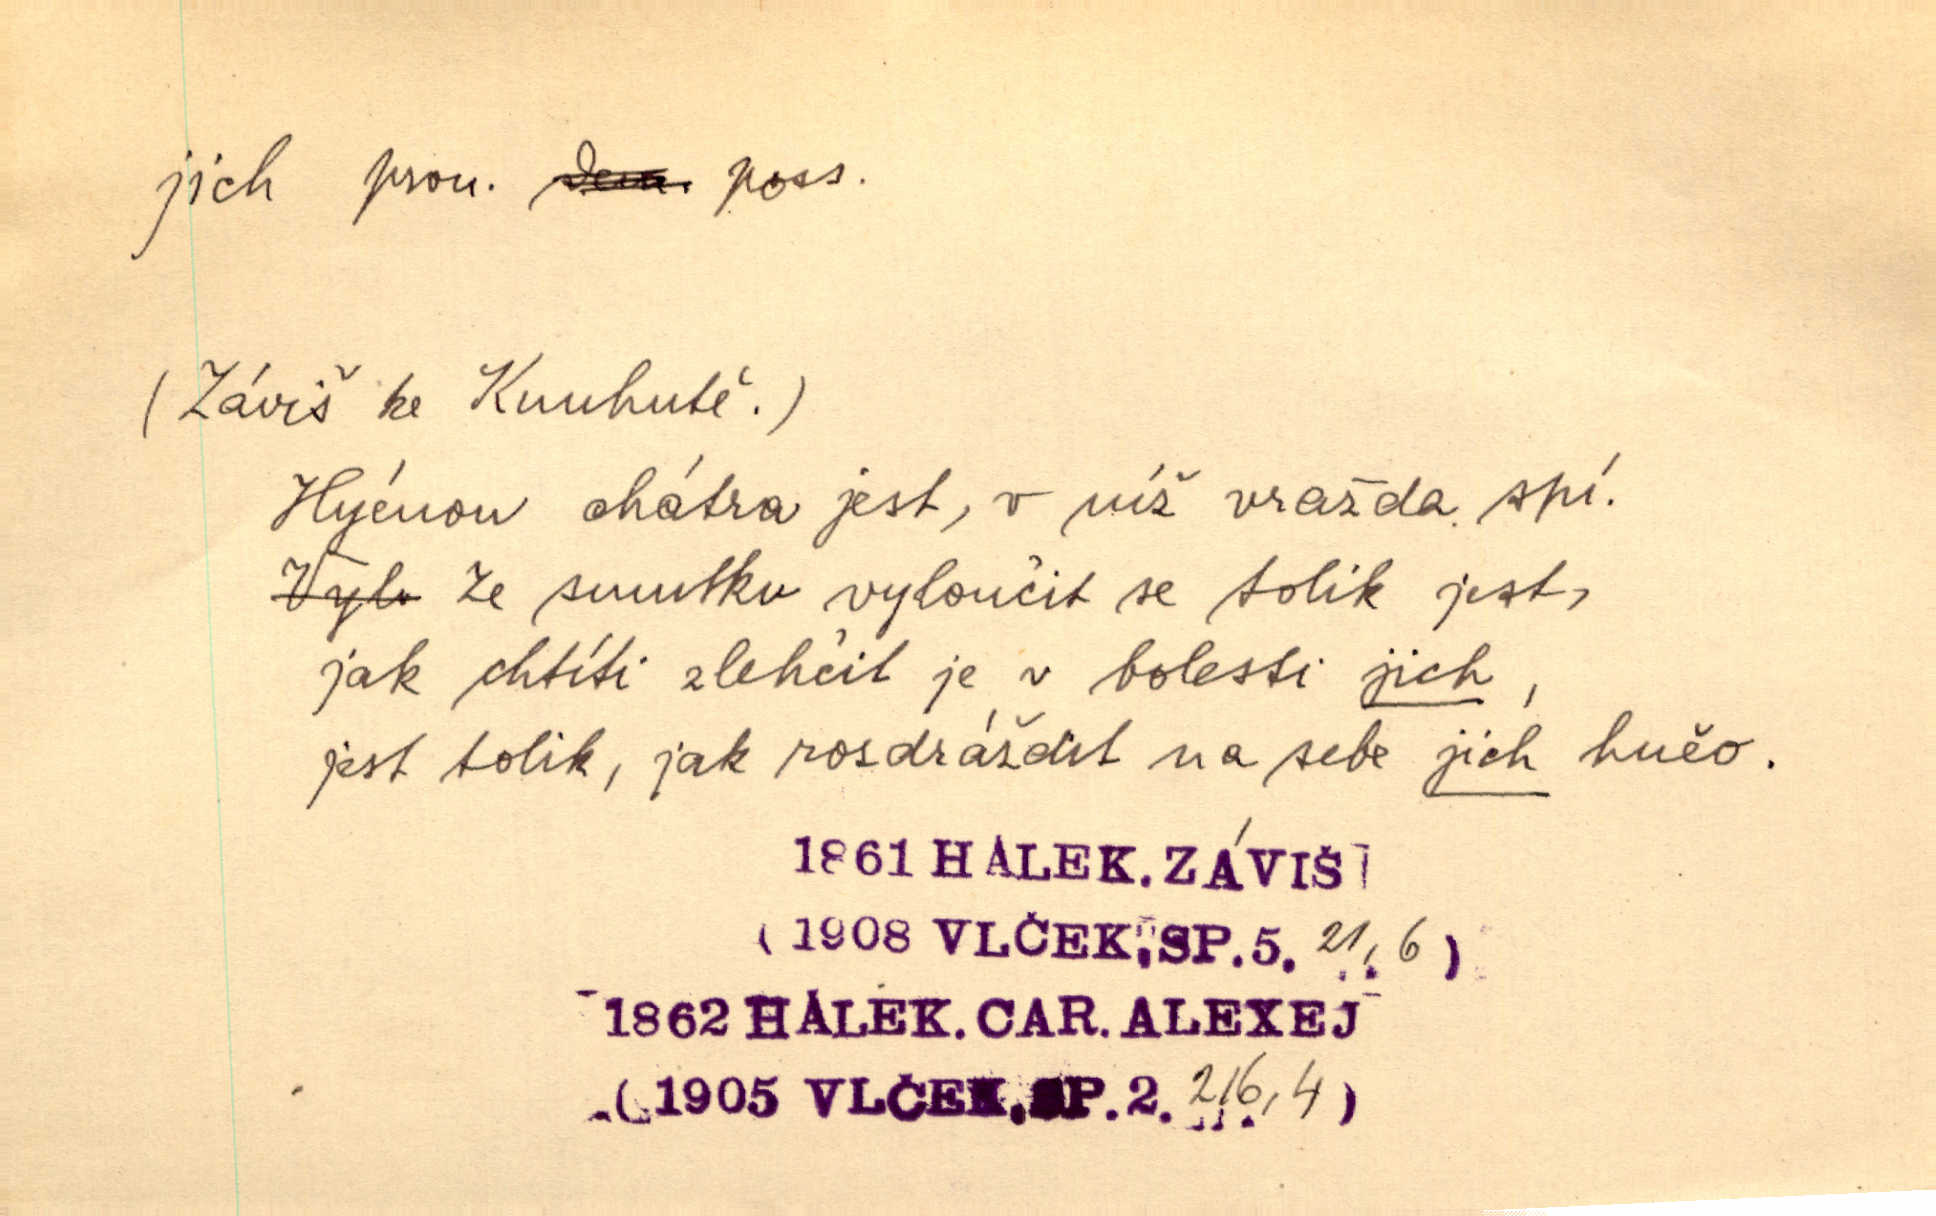 jich pron. dem. poss.
(Záviš ke Kunhutě.)
Hyénou chátra jest, v níž vražda spí.
Vylo Ze smutku vyloučit se tolik jest,
jak chtíti zlehčit je v bolesti jich,
jest tolik, jak rozdráždit na sebe jich hněv.
1861 HÁLEK. ZÁVIŠ
(1908 VLČEK, SP. 5. 21, 6)
1862 HÁLEK. CAR. ALEXEJ
(1905 VLČEK, SP. 2. 216, 4)